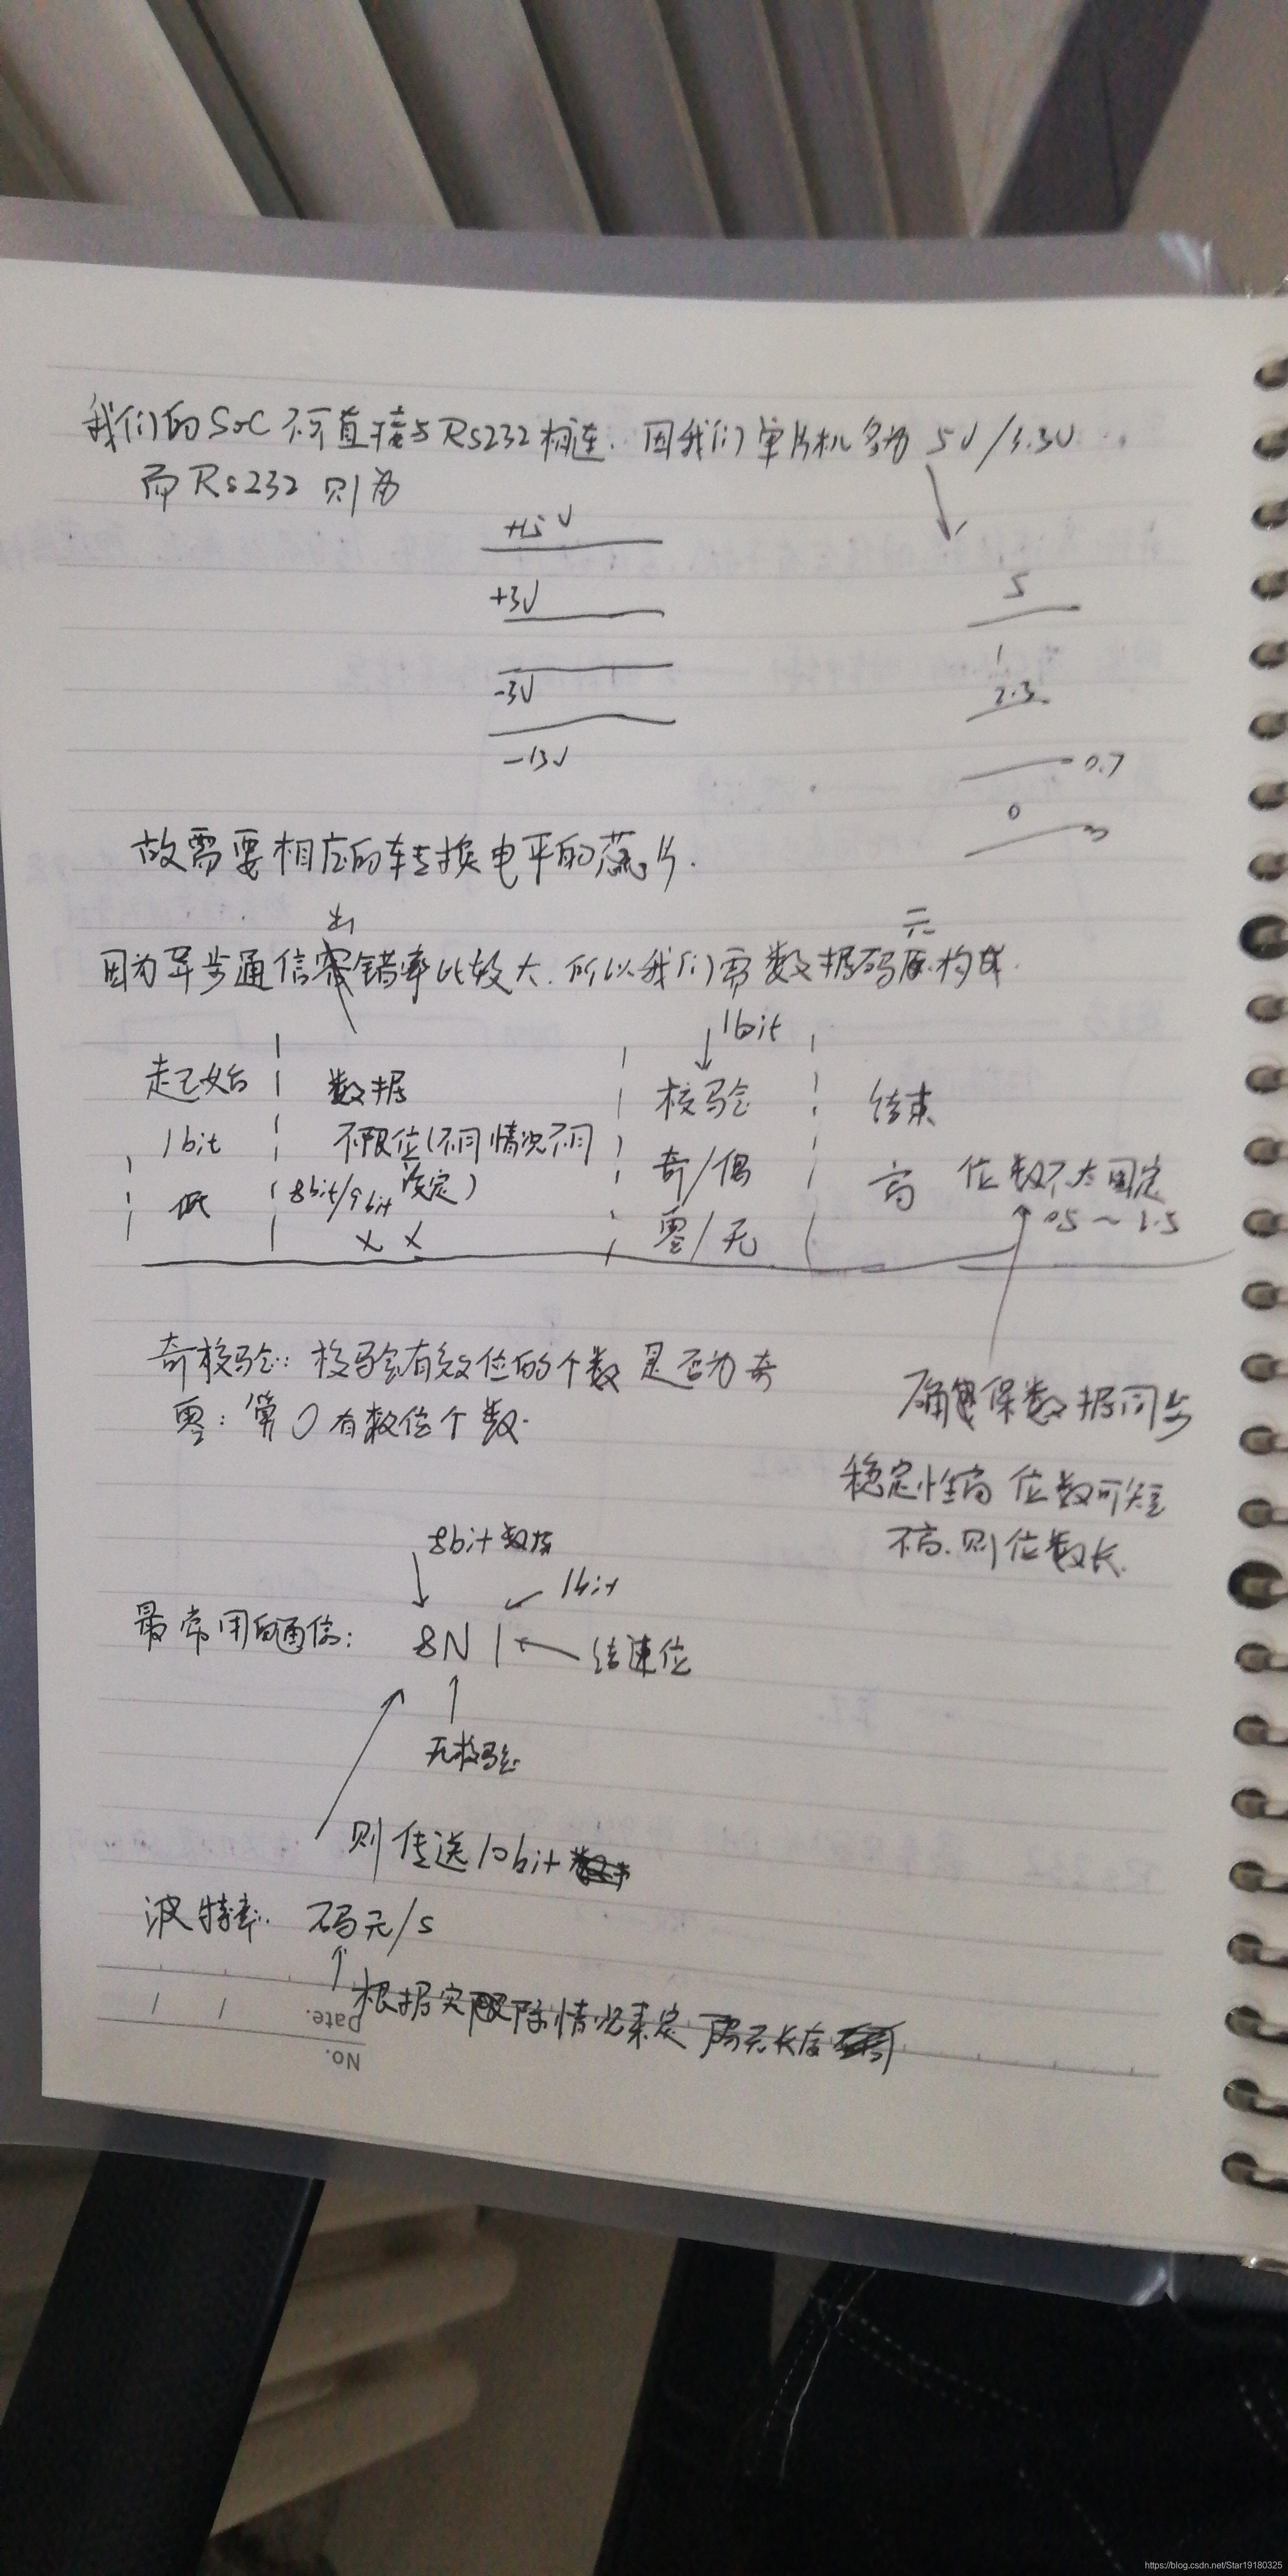 我们的SoC不可直接与Rs232相连.因我们单片机多为5V/3.3V
而Rs232则为
+15V
+3V
-3V
-13V
5
1
2.3
0.7
0
故需要相应的转换电平的芯片.
出 元
因为异步通信错率比较大.所以我们需数据码构成.
1bit
起始 数据 校验 结束
1bit 不限位(不同情况不同 奇/偶
低 8bit/9bit 设定) 高 位数不太固定
x x 零/无 0.5~1.5
奇校验:校验有效位的个数是否为奇
零:算0有数位个数.
确保数据同步
稳定性高 位数可短
不高.则位数长.
8bit数据
1bit
最常用的通信: 8N1 结速位
无校验
则传送10bit
波特率: 码元/s
根据实际情况来定 码元长度
Date.
No.
https://blog.csdn.net/Star19180325